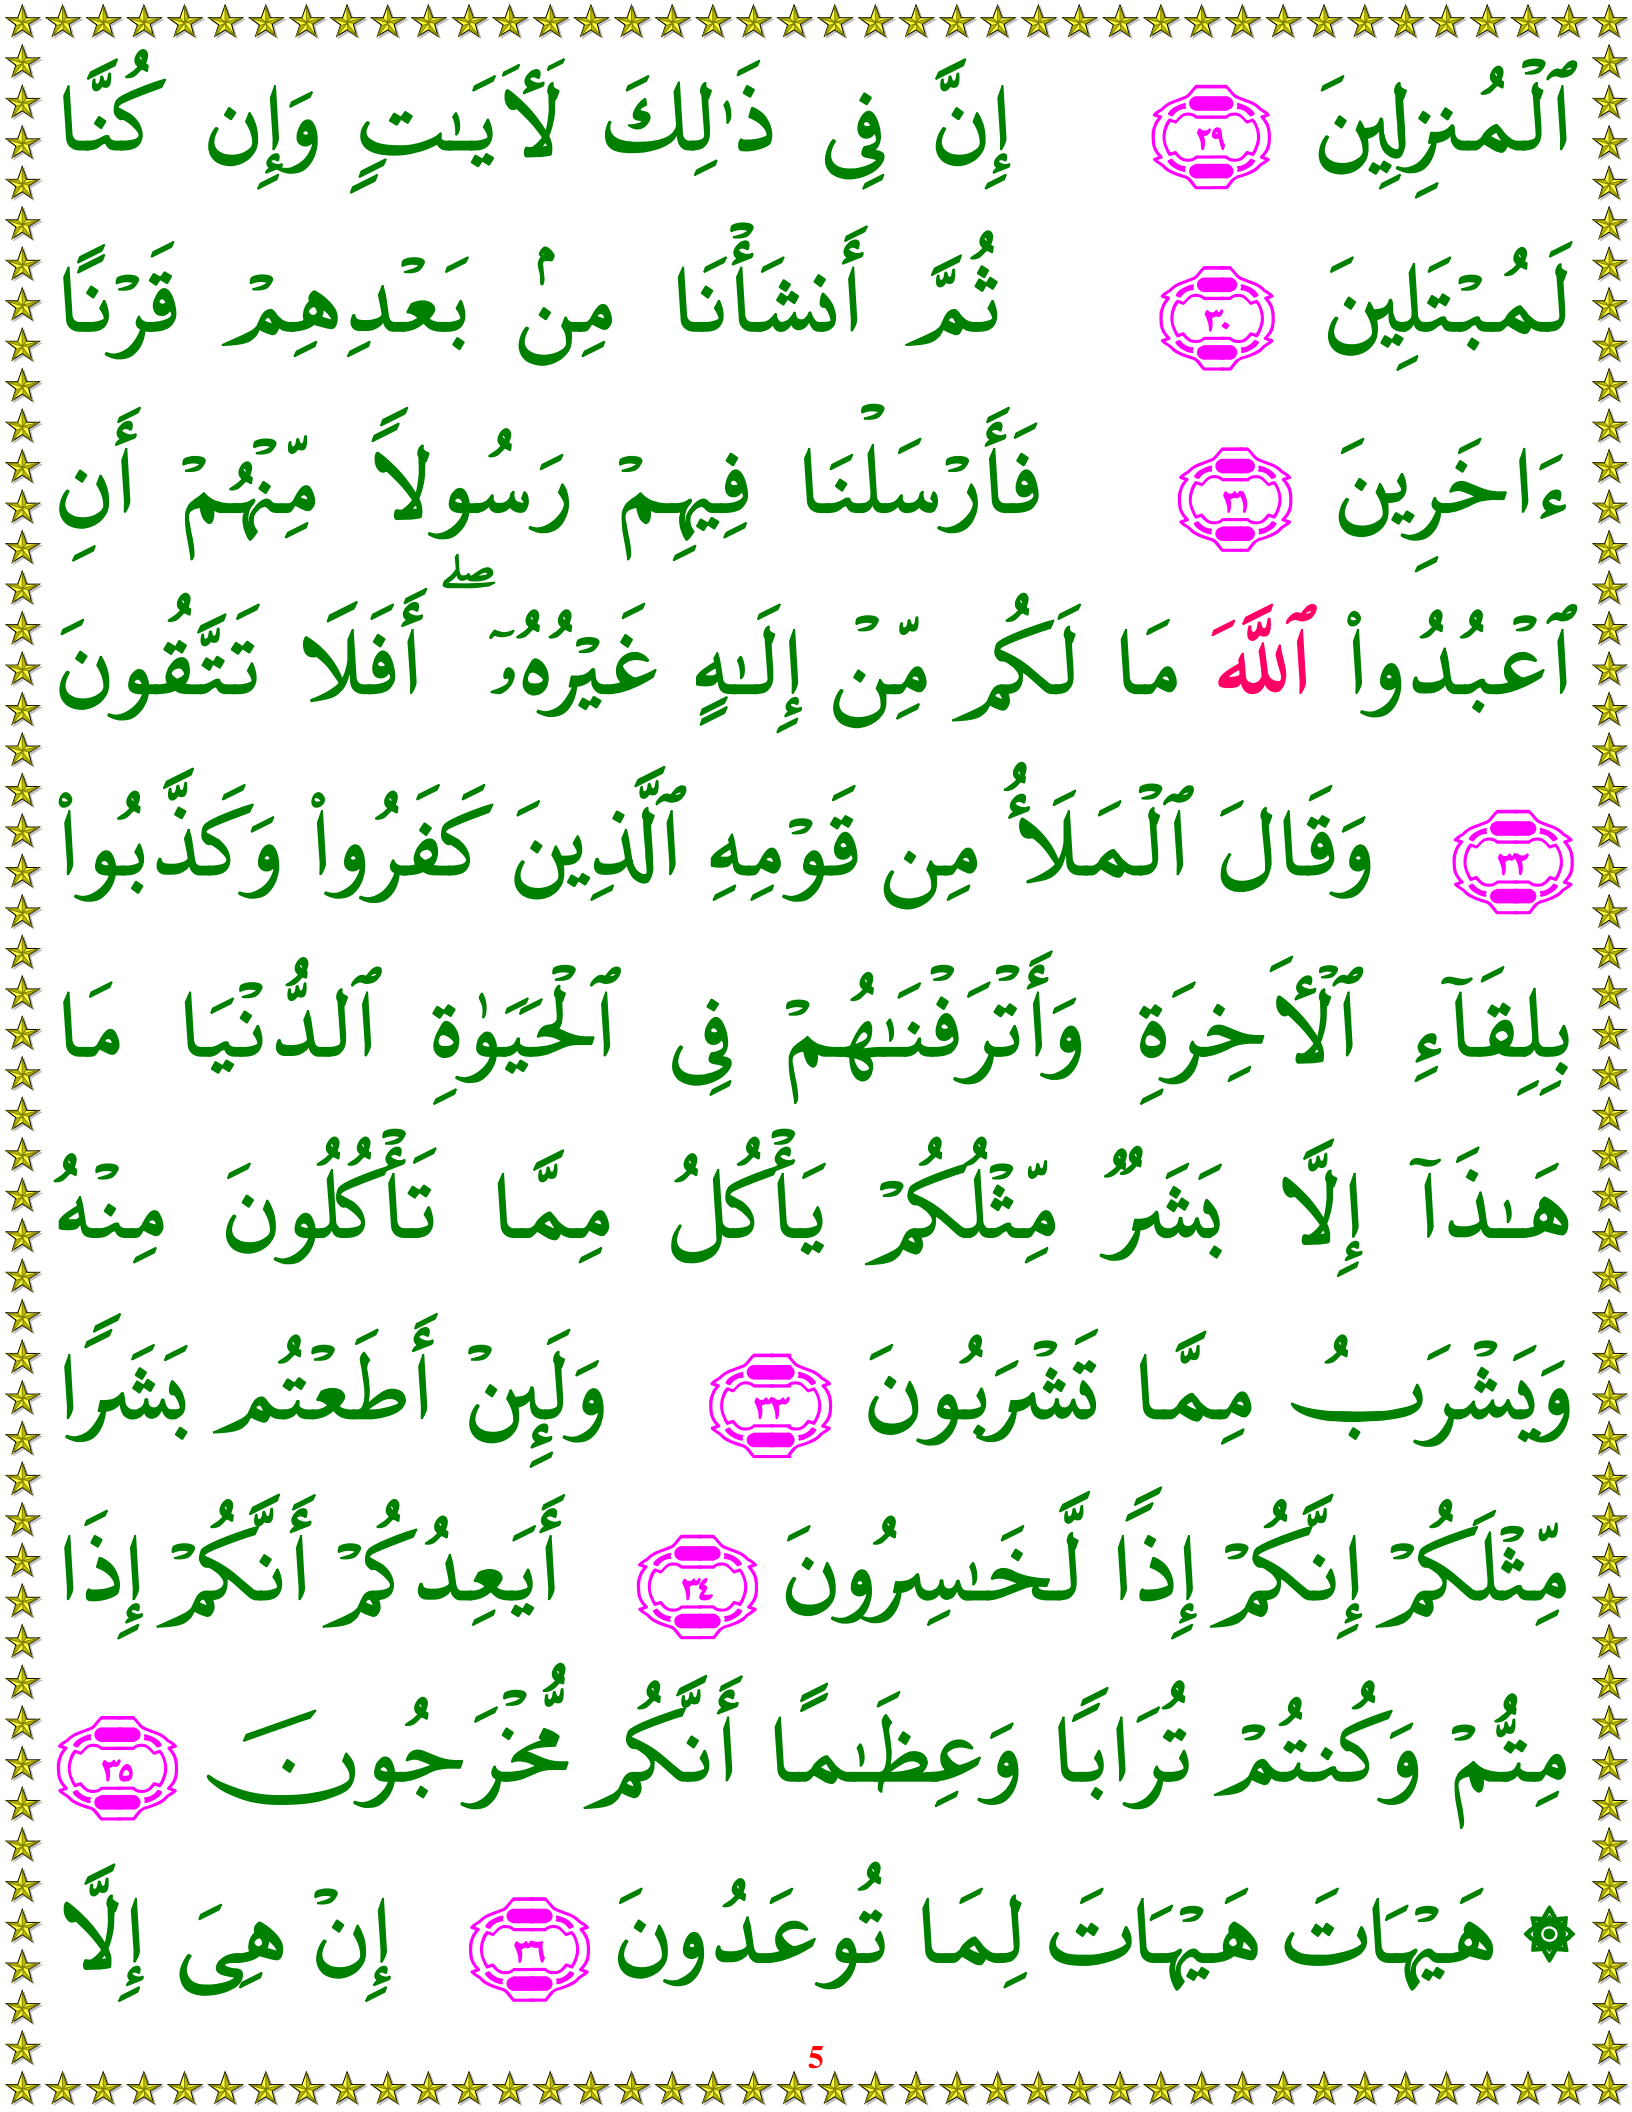 ٱلْمُنزِلِينَ ٢٩ إِنَّ فِى ذَٰلِكَ لَأَيَـٰتٍ وَإِن كُنَّا
لَمُبْتَلِينَ ٣٠ ثُمَّ أَنشَأْنَا مِنۢ بَعْدِهِمْ قَرْنًا
ءَاخَرِينَ ٣١ فَأَرْسَلْنَا فِيهِمْ رَسُولاً مِّنْهُمْ أَنِ
ٱعْبُدُوا۟ ٱللَّهَ مَا لَكُم مِّنْ إِلَـٰهٍ غَيْرُهُۥٓ ۖ أَفَلَا تَتَّقُونَ
٣٢ وَقَالَ ٱلْمَلَأُ مِن قَوْمِهِ ٱلَّذِينَ كَفَرُوا۟ وَكَذَّبُوا۟
بِلِقَآءِ ٱلْأَخِرَةِ وَأَتْرَفْنَـٰهُمْ فِى ٱلْحَيَوٰةِ ٱلدُّنْيَا مَا
هَـٰذَآ إِلَّا بَشَرٌ مِّثْلُكُمْ يَأْكُلُ مِمَّا تَأْكُلُونَ مِنْهُ
وَيَشْرَبُ مِمَّا تَشْرَبُونَ ٣٣ وَلَئِنْ أَطَعْتُم بَشَرًا
مِّثْلَكُمْ إِنَّكُمْ إِذًا لَّخَـٰسِرُونَ ٣٤ أَيَعِدُكُمْ أَنَّكُمْ إِذَا
مِتُّمْ وَكُنتُمْ تُرَابًا وَعِظَـٰمًا أَنَّكُم مُّخْرَجُونَ ٣٥
۞ هَيْهَاتَ هَيْهَاتَ لِمَا تُوعَدُونَ ٣٦ إِنْ هِىَ إِلَّا
5